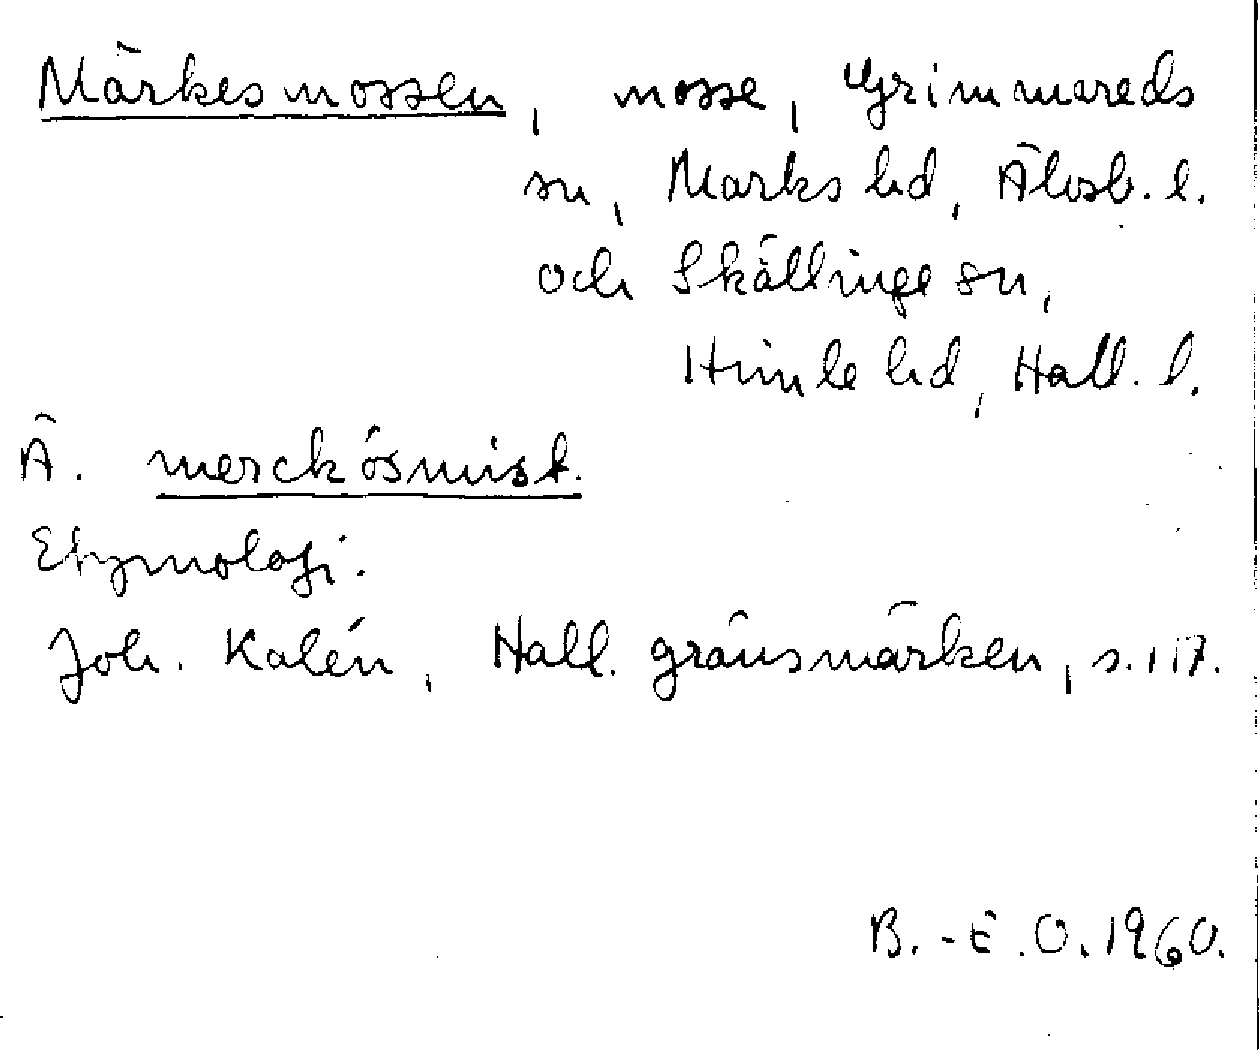 Märkesmossen, mosse, Grimmareds
sn, Marks hd, Älvsb. l.
och Skällinge sn,
Himle hd, Hall. l.
Ä. merckösmist.
Etymologi.
Joh. Kalén, Hall. gränsmärken, s. 117.
B.-E. O. 1960.